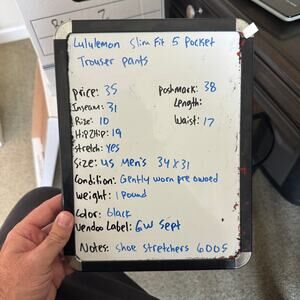 Lululemon Slim Fit 5 Pocket
Trouser pants
Price: 35
Poshmark: 38
Inseam: 31
Length:
Rise: 10
Waist: 17
Hip 2 Hip: 19
Stretch: Yes
Size: US Men's 34X31
Condition: Gently worn pre owned
Weight: 1 Pound
Color: black
Vendoo Label: GW Sept
Notes: Shoe Stretchers 6005